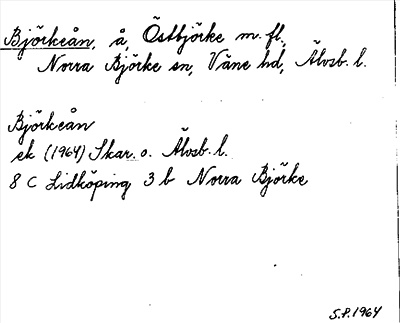 Björkeån, å, Östbjörke m. fl.,
Norra Björke sn, Väne hd, Älvsb. l.
Björkeån
ek (1964) Skar. o. Älvsb. l.
8 C Lidköping 3 b Norra Björke
S.P. 1964